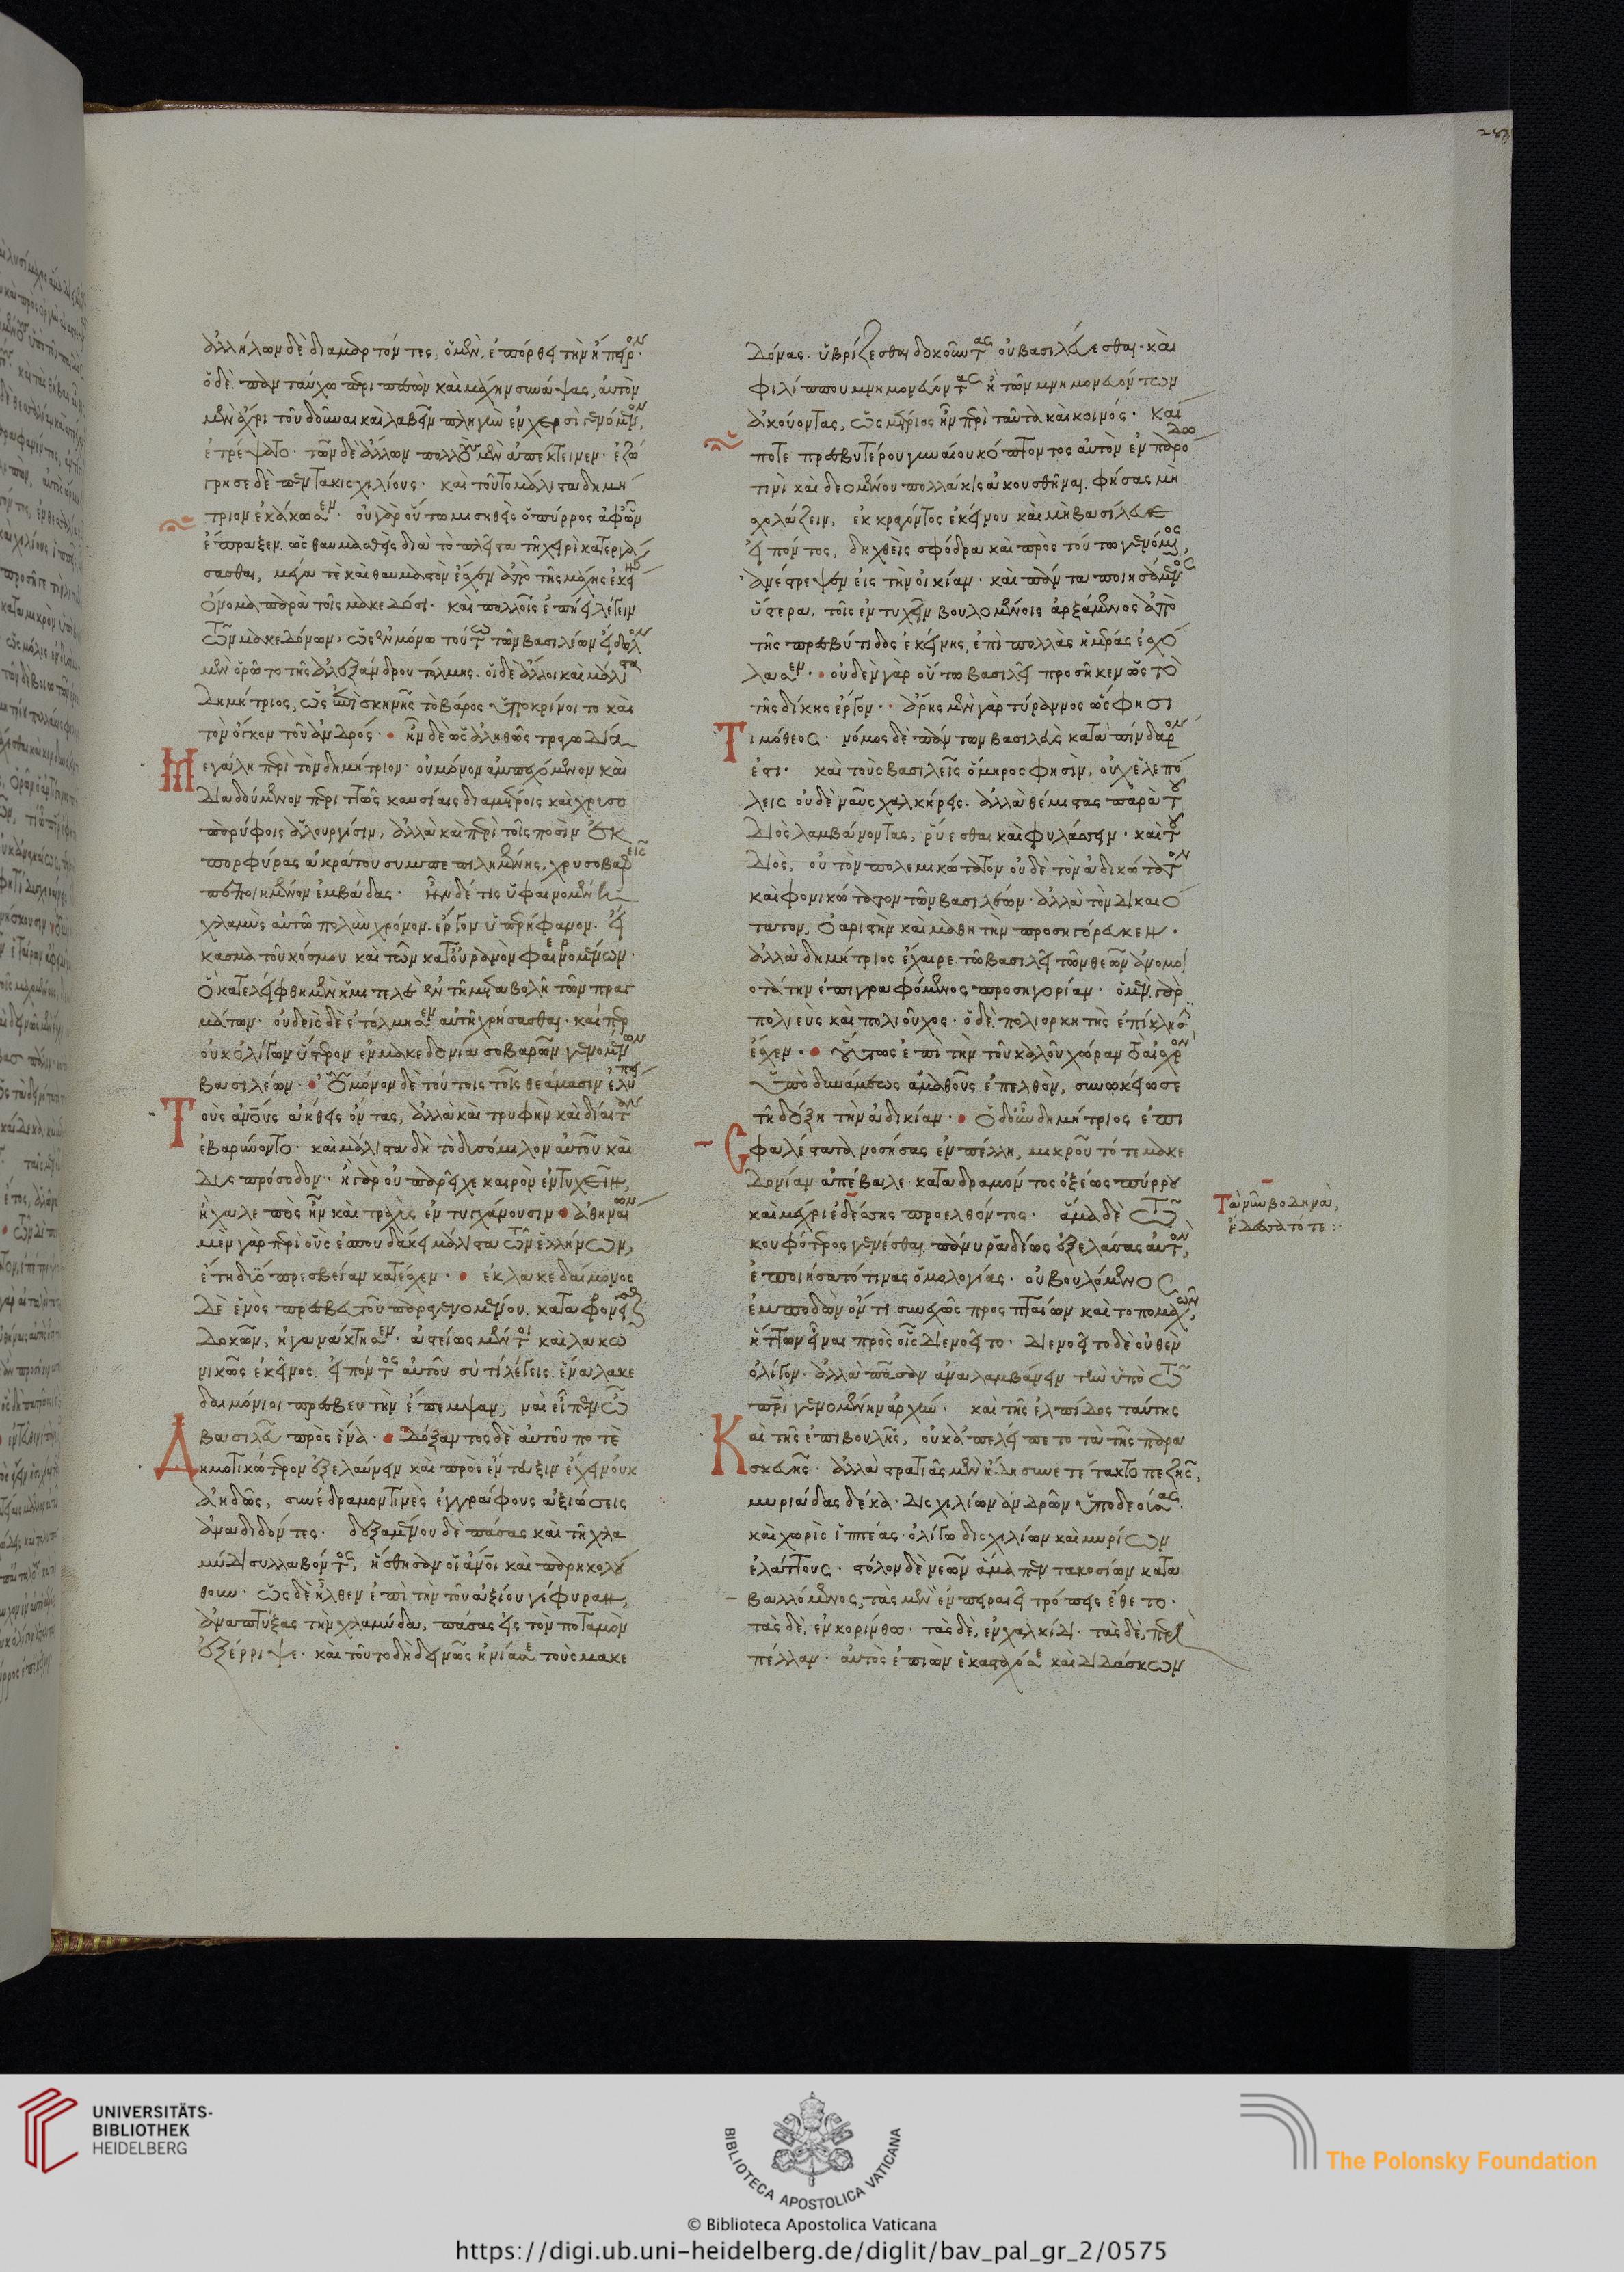 ἀλλήλων δὲ διαμαρτόντες, ὁ μὲν, ἐπόρθει τὴν ἤπειρον·
ὁ δὲ πανταύχω περιπεσὼν καὶ μάχην συνάψας, αὐτὸν
μὲν ἄχρι τοῦ δοῦναι καὶ λαβεῖν πληγὴν ἐν χερσὶ γενόμενον,
ἐτρέψατο· τῶν δὲ ἄλλων πολλοὺς μὲν ἀπέκτεινεν· ἐζώ
γρησε δὲ πεντακισχιλίους· καὶ τοῦτο μάλιστα δημή
τριον ἐκάκωσεν· οὐ γὰρ οὕτω μισηθεὶς ὁ πύρρος ἀφ' ὧν
ἔπραξεν. ὡς θαυμασθεὶς διὰ τὸ πλεῖστα τῇ χειρὶ κατεργά
σασθαι, μέγα τὲ καὶ θαυμαστὸν ἔσχεν ἀπὸ τῆς μάχης ἐκείνης
ὄνομα παρὰ τοῖς μακεδόσι· καὶ πολλοῖς ἐπήει λέγειν
τῶν μακεδόνων, ὡς ἐν μόνω τούτω τῶν βασιλέων εἴδωλον
μὲν ὁρῶτο τῆς ἀλεξάνδρου τόλμης. οἱ δὲ ἄλλοι καὶ μάλιστα
δημήτριος, ὡς ἐπὶ σκηνῆς τὸ βάρος ὑποκρίνοιτο καὶ
τὸν ὄγκον τοῦ ἀνδρός· ἦν δὲ ὡς ἀληθῶς τραγωδία
μεγάλη περὶ τὸν δημήτριον· οὐ μόνον ἀμπεχόμενον καὶ
διαδούμενον περιττῶς καυσίαις διαμέτροις καὶ χρυσο
παρύφοις ἁλουργίσιν, ἀλλὰ καὶ περὶ τοῖς ποσὶν ἐκ
πορφύρας ἀκράτου συμπεπιλημένης, χρυσοβαφεῖς
πεποιημένον ἐμβάδας· ἦν δέ τις ὑφαινομένη
χλαμὺς αὐτῶ πολὺν χρόνον. ἔργον ὑπερήφανον· εἴ
κασμα τοῦ κόσμου καὶ τῶν κατ' οὐρανὸν φαινομένων·
ὃ κατελείφθη μὲν ἡμιτελὲς ἐν τῇ μεταβολῇ τῶν πραγ
μάτων· οὐδεὶς δὲ ἐτόλμησεν αὐτῇ χρήσασθαι· καίπερ
οὐκ ὀλίγων ὕστερον ἐν μακεδονία σοβαρῶν γενομένων
βασιλέων· οὐ μόνον δὲ τούτοις τοῖς θεάμασιν ἐλύπει
τοὺς ἀνθρώπους ἀήθεις ὄντας, ἀλλὰ καὶ τρυφὴν καὶ δίαιταν
ἐβαρύνοντο· καὶ μάλιστα δὴ τὸ δυσόμιλον αὐτοῦ καὶ
δυσπρόσοδον· ἢ γὰρ οὐ παρεῖχε καιρὸν ἐντυχεῖν,
ἢ χαλεπὸς ἦν καὶ τραχὺς ἐντυγχάνουσιν· ἀθηναίων
μὲν γὰρ περὶ οὓς ἐσπουδάκει μάλιστα τῶν ἑλλήνων,
ἔτη δύο πρεσβείαν κατέσχεν· ἐκ λακεδαίμονος
δὲ ἑνὸς πρεσβευτοῦ παραγενομένου. καταφρονεῖσθαι
δοκῶν, ἠγανάκτησεν· ἀστείως μέντοι καὶ λακω
νικῶς ἐκεῖνος. εἰπόντος αὐτοῦ σὺ τί λέγεις. ἕνα λακε
δαιμόνιοι πρεσβευτὴν ἔπεμψαν; ναὶ εἶπεν ὦ
βασιλεῦ πρὸς ἕνα· δόξαντος δὲ αὐτοῦ ποτὲ
δημοτικώτερον ἐξελαύνειν καὶ πρὸς ἔντευξιν ἔχειν οὐκ
ἀηδῶς, συνέδραμον τινὲς ἐγγράφους ἀξιώσεις
ἀναδιδόντες· δεξαμένου δὲ πάσας καὶ τῇ χλα
μύδι συλλαβόντος, ἥσθησαν οἱ ἄνθρωποι καὶ παρηκολού
θουν· ὡς δὲ ἦλθεν ἐπὶ τὴν τοῦ ἀξίου γέφυραν,
ἀναπτύξας τὴν χλαμύδα, πάσας εἰς τὸν ποταμὸν
ἐξέρριψε· καὶ τοῦτο δὴ δεινῶς ἠνίασε τοὺς μακε
δόνας. ὑβρίζεσθαι δοκοῦντας οὐ βασιλεύεσθαι· καὶ
φιλίππου μνημονεύοντας ἢ τῶν μνημονευόντων
ἀκούοντας, ὡς μέτριος ἦν περὶ ταῦτα καὶ κοινός· καί
ποτε πρεσβυτέρου γυναίου κόπτοντος αὐτὸν ἐν παρόδω
τινὶ καὶ δεομένου πολλάκις ἀκουσθῆναι. φήσας μὴ
σχολάζειν, ἐκκραγόντος ἐκείνου καὶ μὴ βασίλευε
εἰπόντος, δηχθεὶς σφόδρα καὶ πρὸς τούτω γενόμενος,
ἀνέστρεψεν εἰς τὴν οἰκίαν· καὶ πάντα ποιησάμενος
ὕστερα, τοῖς ἐντυχεῖν βουλομένοις ἀρξάμενος ἀπὸ
τῆς πρεσβύτιδος ἐκείνης, ἐπὶ πολλὰς ἡμέρας ἐσχό
λασεν· οὐδὲν γὰρ οὕτω βασιλεῖ προσῆκεν ὡς τὸ
τῆς δίκης ἔργον· ἄρης μὲν γὰρ τύραννος ὥς φησι
τιμόθεος· νόμος δὲ πάντων βασιλεὺς κατὰ πίνδαρον
ἐστι· καὶ τοὺς βασιλεῖς ὅμηρος φησὶν, οὐχ ἑλεπό
λεις οὐδὲ ναῦς χαλκήρεις. ἀλλὰ θέμιστας παρὰ τοῦ
διὸς λαμβάνοντας, ῥύεσθαι καὶ φυλάσσειν· καὶ τοῦ
διὸς, οὐ τὸν πολεμικώτατον οὐδὲ τὸν ἀδικώτατον
καὶ φονικώτατον τῶν βασιλέων· ἀλλὰ τὸν δικαιό
τατον, ὀαριστὴν καὶ μαθητὴν προσηγόρευκεν·
ἀλλὰ δημήτριος ἔχαιρε. τῶ βασιλεῖ τῶν θεῶν ἀνομοι
οτάτην ἐπιγραφόμενος προσηγορίαν· ὁ μὲν γὰρ
πολιεὺς καὶ πολιοῦχος· ὁ δὲ, πολιορκητὴς ἐπίκλησιν
ἔσχεν· οὕτως ἐπὶ τὴν τοῦ καλοῦ χώραν τὸ αἰσχρὸν
ὑπὸ δυνάμεως ἀμαθοῦς ἐπελθὸν, συνωκείωσε
τῇ δόξῃ τὴν ἀδικίαν· ὁ δ' οὖν δημήτριος ἐπι
σφαλέστατα νοσήσας ἐν πέλλῃ, μικροῦ τότε μακε
δονίαν ἀπέβαλε· καταδραμόντος ὀξέως πύρρου
καὶ μέχρι ἐδέσσης προελθόντος· ἅμα δὲ τῶ
κουφότερος γενέσθαι. πάνυ ῥαδίως ἐξελάσας αὐτὸν,
ἐποιήσατό τινας ὁμολογίας· οὐ βουλόμενος
ἐμποδὼν ὄντι συνεχῶς προσπταίων καὶ τοπομαχῶν,
ἥττων εἶναι πρὸς οἷς διενοεῖτο· διενοεῖτο δὲ οὐθὲν
ὀλίγον· ἀλλὰ πᾶσαν ἀναλαμβάνειν τὴν ὑπὸ τῶ
πατρὶ γενομένην ἀρχήν· καὶ τῆς ἐλπίδος ταύτης
καὶ τῆς ἐπιβουλῆς, οὐκ ἀπελείπετο τὰ τῆς παρα
σκευῆς· ἀλλὰ στρατιᾶς μὲν ἤδη συνετέτακτο πεζῆς,
μυριάδας δέκα· δισχιλίων ἀνδρῶν ὑποδεούσας·
καὶ χωρὶς ἱππέας· ὀλίγω δισχιλίων καὶ μυρίων
ἐλάττους· στόλον δὲ νεῶν ἅμα πεντακοσίων κατα
βαλλόμενος, τὰς μὲν ἐν πειραιεῖ τρόπεις ἔθετο·
τὰς δὲ, ἐν κορίνθω· τὰς δὲ, ἐν χαλκίδι· τὰς δὲ, περὶ
πέλλαν· αὐτὸς ἐπιὼν ἑκασταχόσε καὶ διδάσκων
Τὰ νῦν βοδηνὰ,
ἔδεσσα τότε :·
UNIVERSITÄTS-
BIBLIOTHEK
HEIDELBERG
BIBLIOTECA APOSTOLICA VATICANA
© Biblioteca Apostolica Vaticana
The Polonsky Foundation
https://digi.ub.uni-heidelberg.de/diglit/bav_pal_gr_2/0575